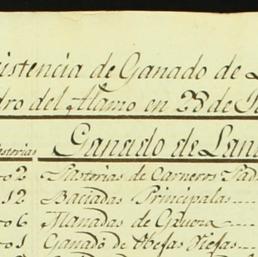 istencia de Ganado de L
dro del Alamo en 23 de
Ganado de Lan
to 2 Pastorias de Carneros Pad
12 Baciadas Principalas
to 6 Manadas de Grueza
to 1 Ganado de Obejas Viejas